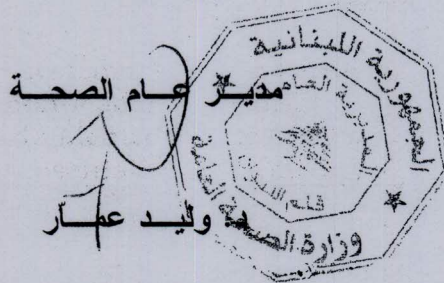 مديـر عـام الصحـة
د. وليـد عمـّار
الجمهورية اللبنانية
وزارة الصحة العامة
المديرية العامة